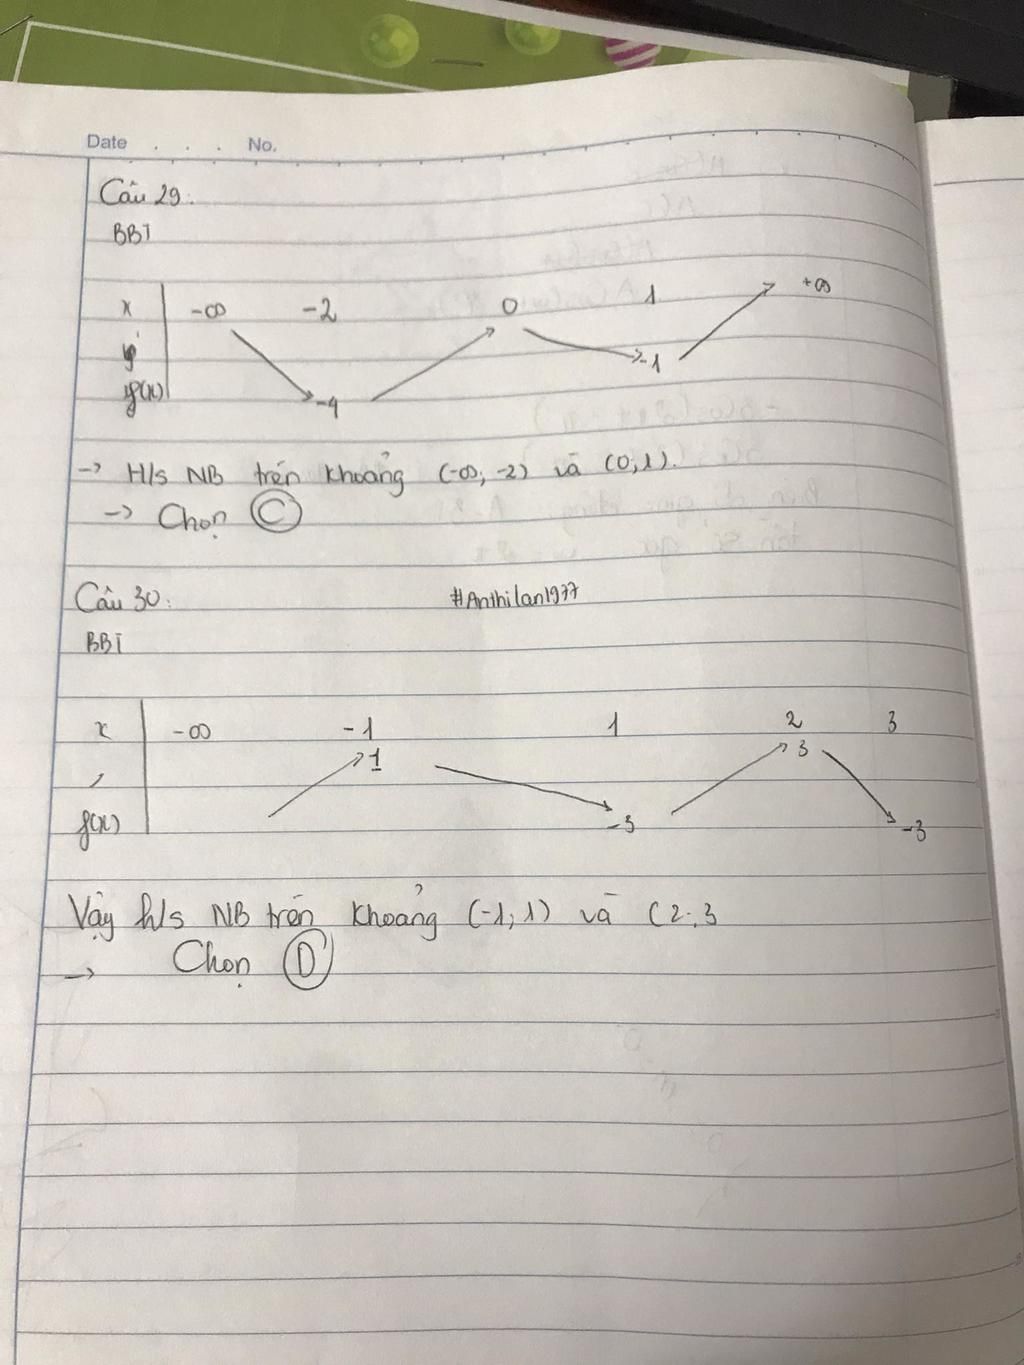 Date . . . No.
Câu 29:
BBT
x -∞ -2 0 1 +∞
y'
f(x) -4 -1
-> H/s NB trên khoảng (-∞; -2) và (0;1).
-> Chọn C
Câu 30: #Anthilan1977
BBT
x -∞ -1 1 2 3
1 3
f(x) -3 -3
Vậy h/s NB trên khoảng (-1;1) và (2;3
-> Chọn D